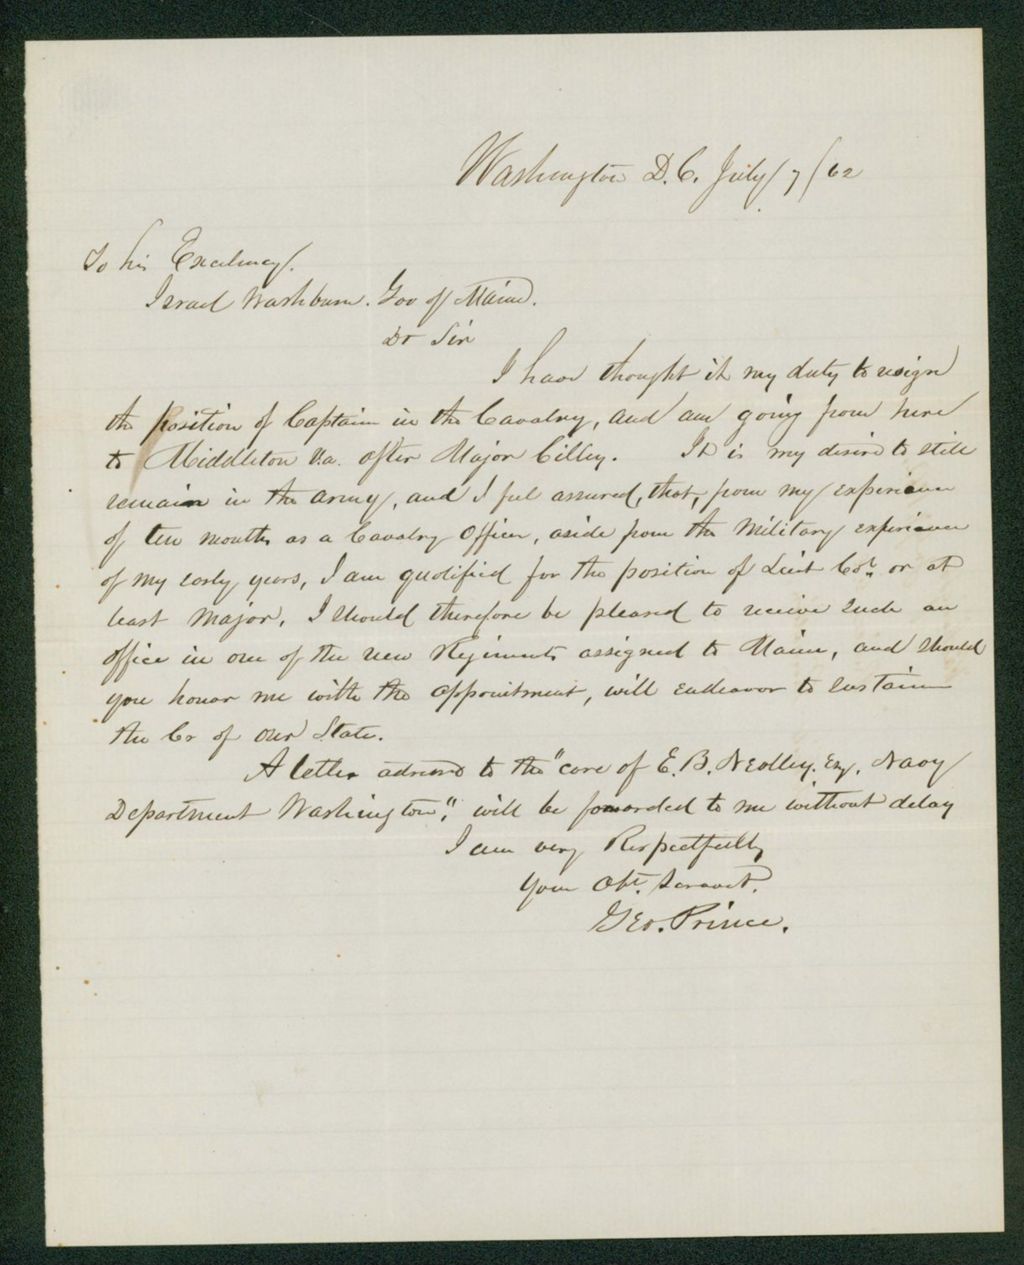 Washington D.C. July 7/62
To his Excelency.
Israel Washburn. Gov of Maine.
Dr Sir
I have thought it my duty to resign
the position of Captain in the Cavalry, and am going from here
to Middleton Va. after Major Cilley. It is my desire to still
remain in the army, and I feel assured, that, from my experience
of ten months as a Cavalry Officer, aside from the Military experience
of my early years, I am qualified for the position of Lieut Col. or at
least Major. I should therefore be pleased to receive such an
office in one of the new Regiments assigned to Maine, and should
you honor me with the appointment, will endeavor to sustain
the Cr of our State.
A letter adressd to the "care of E. B. Neolley. Esq. Navy
Department Washington", will be forwarded to me without delay
I am very Respectfully
Your Obt. Servant.
Geo. Prince.